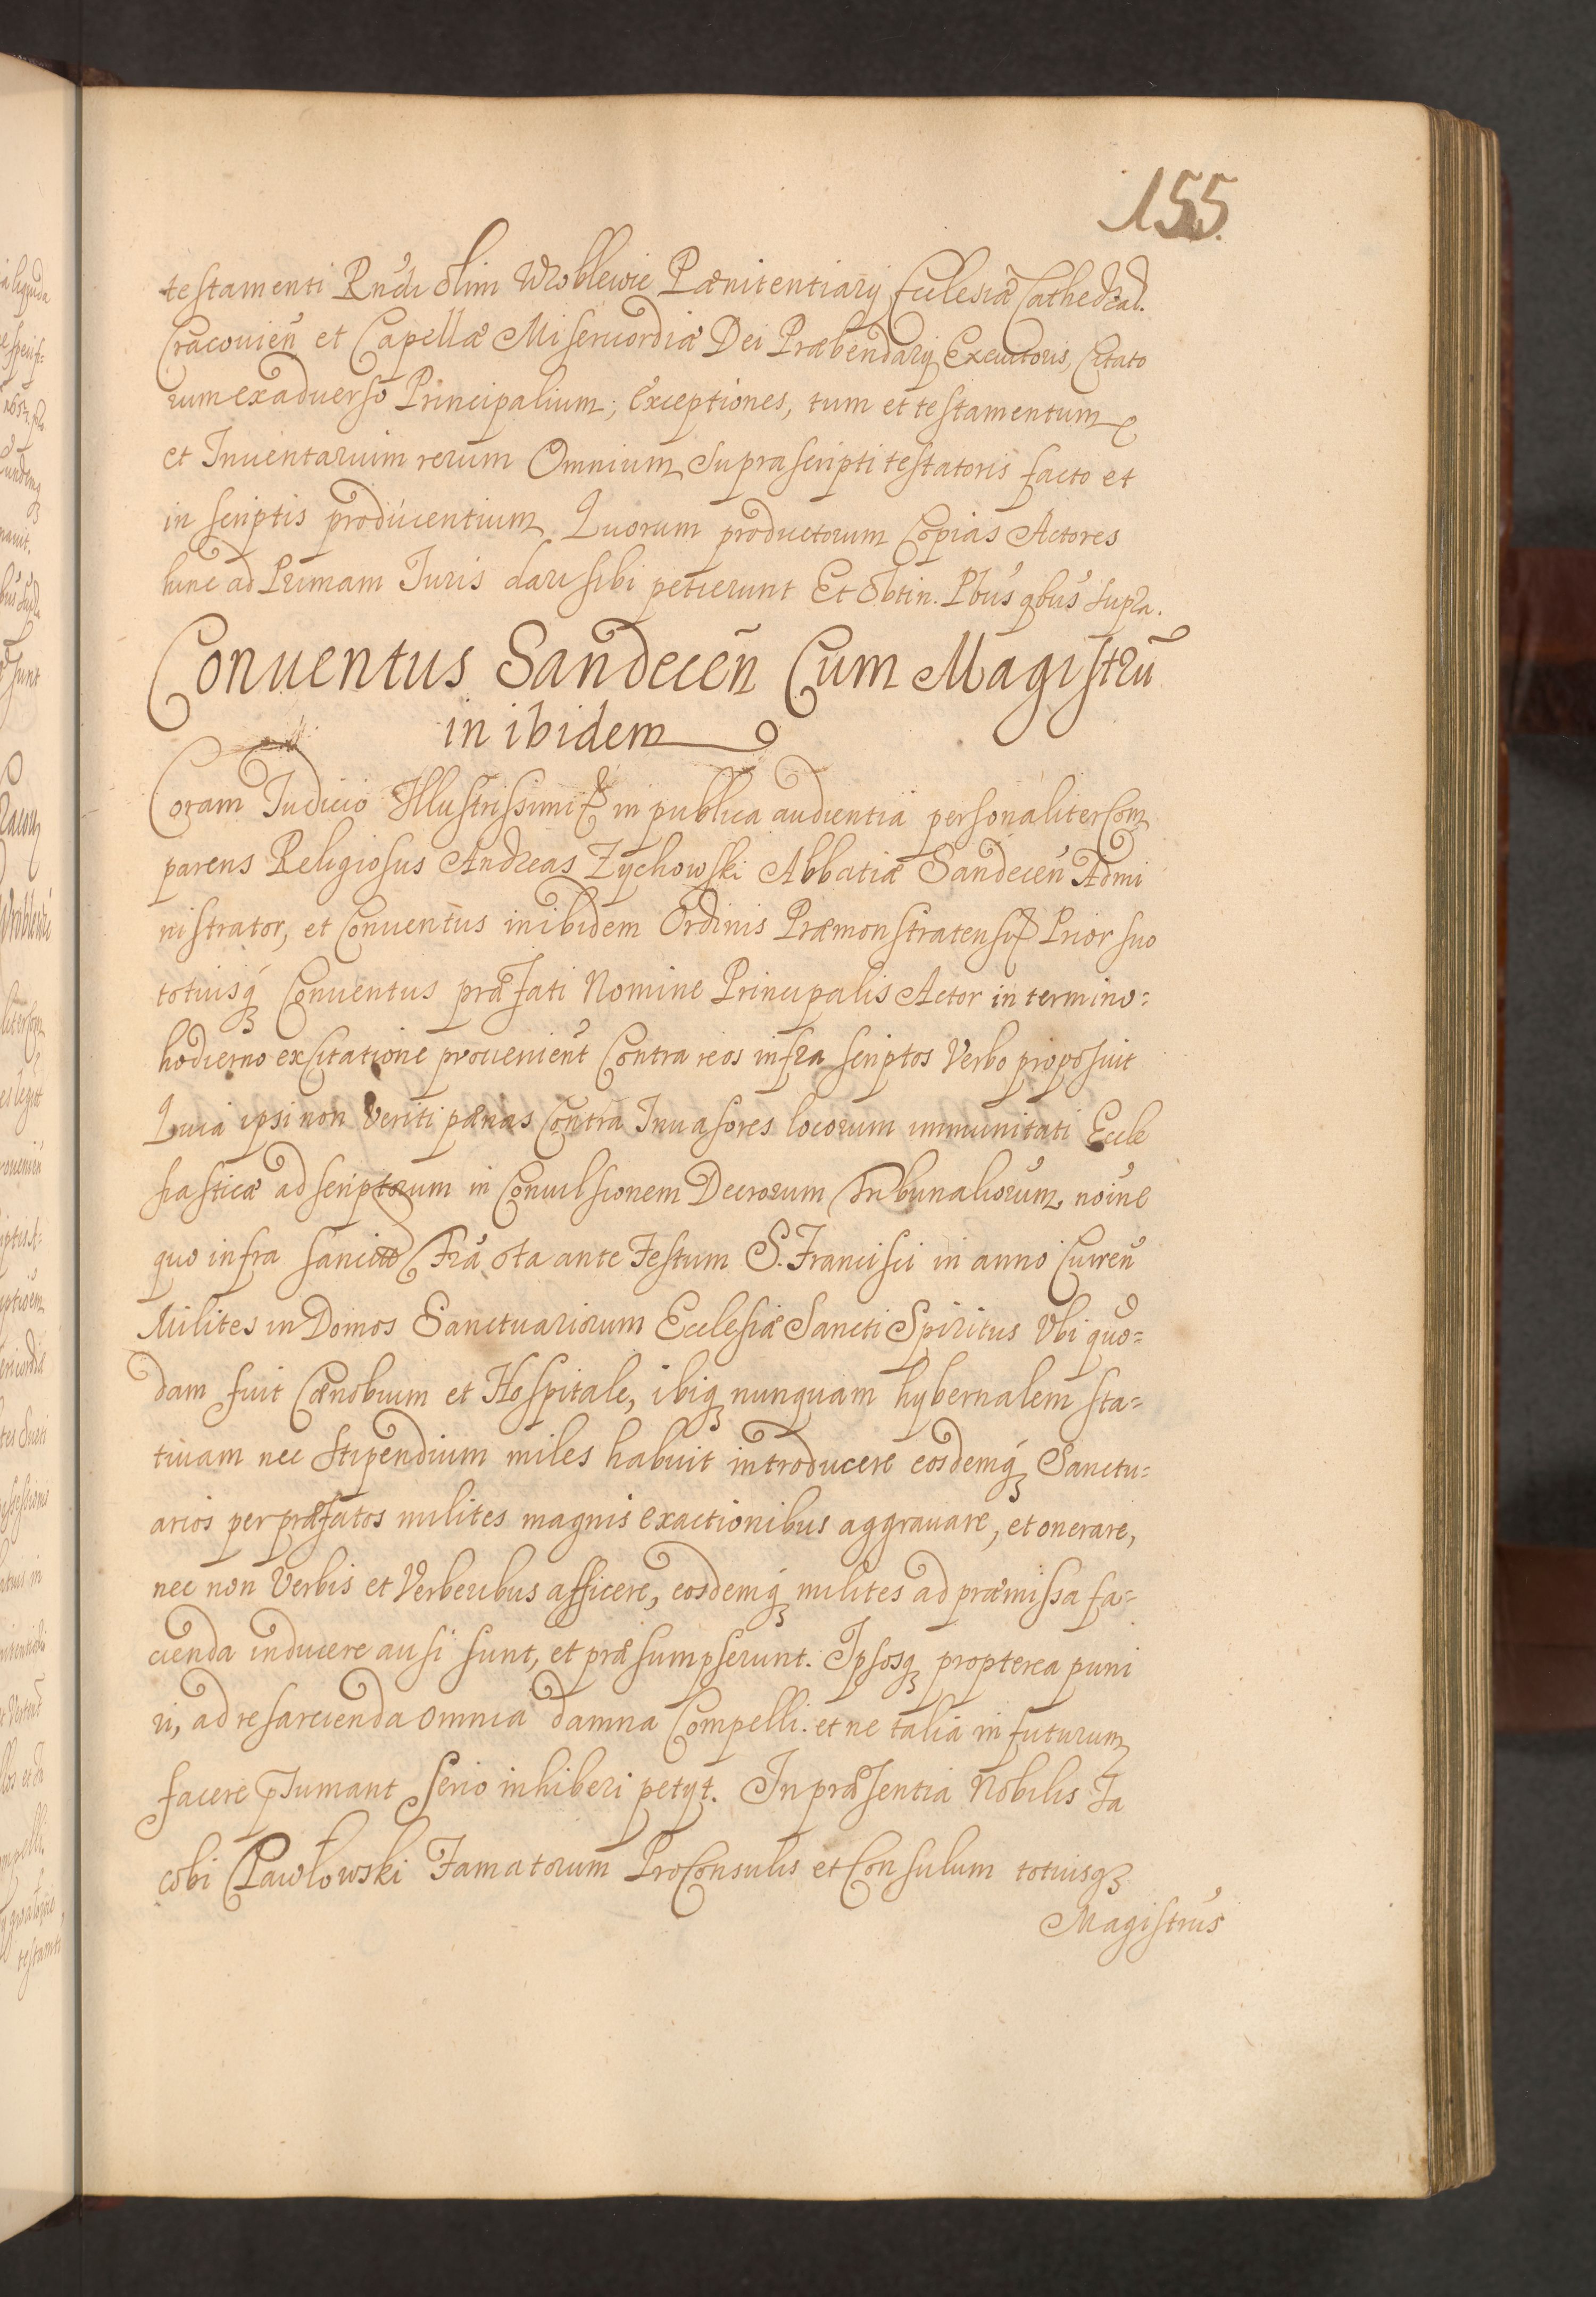 155.
testamenti Rñdi olim Wroblewic Pænitentiarij Ecclesiæ Cathedral.
Cracovieñ et Capellæ Misericordiæ Dei Præbendarij Executoris, Citato
rum ex adverso Principalium; exceptiones, tum et testamentum
et Inventarium rerum Omnium Suprascripti testatoris facto et
in scriptis producentium Quorum productorum Copias Actores
hinc ad Primam Juris dari sibi petierunt Et Obtin. Pbus qbus supra.
Conventus Sandeceñ Cum Magistrū
in ibidem
Coram Judicio Illustrissimi & in publica audientia personaliter Com
parens Religiosus Andreas Zychowski Abbatiæ Sandeceñ Admi
nistrator, et Conventus inibidem Ordinis Præmonstratensis Prior suo
totiusq́ Conventus præfati Nomine Principalis Actor in termino=
hodierno ex Citatione provenieñt Contra reos infra scriptos Verbo proposuit
Quia ipsi non Veriti pænas Contra Invasores locorum immunitati Eccle
siasticæ adscriptorum in Convulsionem Decrorum Tribunaliorum, noine
quo infra sancito Fra 6ta ante Festum S. Francisci in anno Curreñ
Milites in Domos Sanctuariorum Ecclesiæ Sancti Spiritus Vbi quo=
dam fuit Cænobium et Hospitale, ibiq nunquam hybernalem sta=
tivam nec Stipendium miles habuit introducere eosdemq́ Sanctu=
arios per præfatos milites magnis exactionibus aggravare, et onerare,
nec non Verbis et Verberibus afficere, eosdemq́ milites ad præmissa fa=
cienda inducere ausi sunt, et præsumpserunt. Ipsosq propterea puni
ri, ad resarcienda omnia damna Compelli. et ne talia in futurum
facere p̄sumant serio inhiberi petyt. In præsentia Nobilis Ja
cobi Pawłowski Famatorum ProConsulis et Consulum totiusq
Magistrus